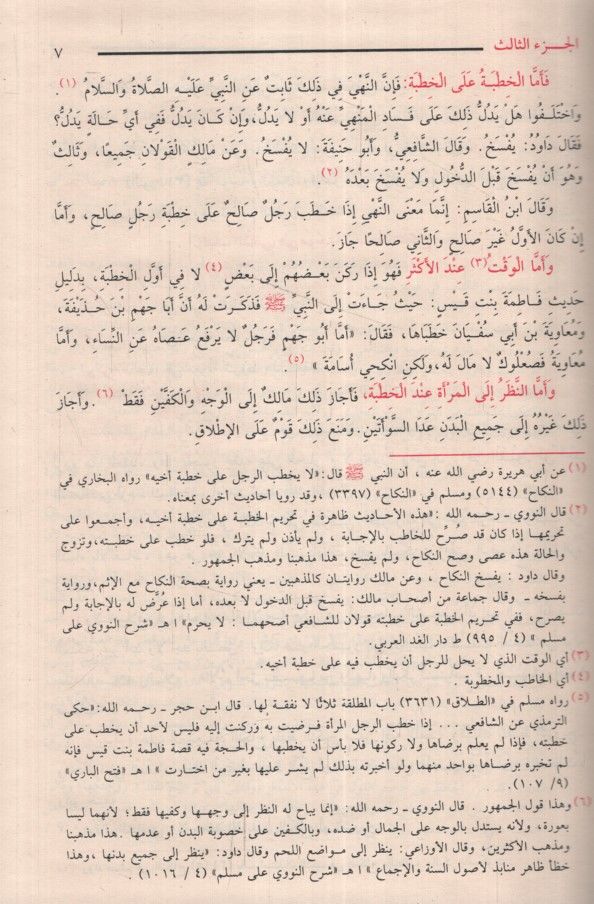 الجـزء الثالث ٧
فَأَمَّا الْخِطْبَةُ عَلَى الْخِطْبَةِ: فَإِنَّ النَّهْيَ فِي ذَلِكَ ثَابِتٌ عَنِ النَّبِيِّ عَلَيْهِ الصَّلَاةُ وَالسَّلَامُ (١).
وَاخْتَلَفُوا هَلْ يَدُلُّ ذَلِكَ عَلَى فَسَادِ الْمَنْهِيِّ عَنْهُ أَوْ لَا يَدُلُّ، وَإِنْ كَانَ يَدُلُّ فَفِي أَيِّ حَالَةٍ يَدُلُّ؟
فَقَالَ دَاوُدُ: يُفْسَخُ. وَقَالَ الشَّافِعِيُّ، وَأَبُو حَنِيفَةَ: لَا يُفْسَخُ. وَعَنْ مَالِكٍ الْقَوْلَانِ جَمِيعًا، وَثَالِثٌ
وَهُوَ أَنْ يُفْسَخَ قَبْلَ الدُّخُولِ وَلَا يُفْسَخَ بَعْدَهُ (٢).
وَقَالَ ابْنُ الْقَاسِمِ: إِنَّمَا مَعْنَى النَّهْيِ إِذَا خَطَبَ رَجُلٌ صَالِحٌ عَلَى خِطْبَةِ رَجُلٍ صَالِحٍ، وَأَمَّا
إِنْ كَانَ الأَوَّلُ غَيْرَ صَالِحٍ وَالثَّانِي صَالِحًا جَازَ.
وَأَمَّا الْوَقْتُ(٣) عِنْدَ الأَكْثَرِ فَهُوَ إِذَا رَكَنَ بَعْضُهُمْ إِلَى بَعْضٍ(٤) لَا فِي أَوَّلِ الْخِطْبَةِ، بِدَلِيلِ
حَدِيثِ فَاطِمَةَ بِنْتِ قَيْسٍ: حَيْثُ جَاءَتْ إِلَى النَّبِيِّ ﷺ فَذَكَرَتْ لَهُ أَنَّ أَبَا جَهْمِ بْنَ حُذَيْفَةَ،
وَمُعَاوِيَةَ بْنَ أَبِي سُفْيَانَ خَطَبَاهَا، فَقَالَ: «أَمَّا أَبُو جَهْمٍ فَرَجُلٌ لَا يَرْفَعُ عَصَاهُ عَنِ النِّسَاءِ، وَأَمَّا
مُعَاوِيَةُ فَصُعْلُوكٌ لَا مَالَ لَهُ، وَلَكِنِ انْكَحِي أُسَامَةَ » (٥).
وَأَمَّا النَّظَرُ إِلَى الْمَرْأَةِ عِنْدَ الْخِطْبَةِ، فَأَجَازَ ذَلِكَ مَالِكٌ إِلَى الْوَجْهِ وَالْكَفَّيْنِ فَقَطْ (٦). وَأَجَازَ
ذَلِكَ غَيْرُهُ إِلَى جَمِيعِ الْبَدَنِ عَدَا السَّوْأَتَيْنِ. وَمَنَعَ ذَلِكَ قَوْمٌ عَلَى الإِطْلَاقِ.
(١) عن أبي هريرة رضي الله عنه ، أن النبي ﷺ قال: «لا يخطب الرجل على خطبة أخيه» رواه البخاري في
«النكاح» (٥١٤٤) ومسلم في «النكاح» (٣٣٩٧) ،وقد رويا أحاديث أخرى بمعناه.
(٢) قال النووي ـ رحمه الله : «هذه الأحاديث ظاهرة في تحريم الخطبة على خطبة أخيـه، وأجمعوا على
تحريمها إذا كان قد صُرِّح للخاطب بالإجابة ، ولم يأذن ولم يترك ، فلو خطب على خطبـته، وتزوج
والحالة هذه عصى وصح النكاح، ولم يفسخ، هذا مذهبنا ومذهب الجمهور .
وقال داود : يفسخ النكاح ، وعن مالك روايتان كالمذهبين ـ يعني رواية بصحة النكاح مع الإثم، ورواية
بفسخه ـ وقال جماعة من أصحاب مالك: يفسخ قبل الدخول لا بعده، أما إذا عُرِّض له بالإجابة ولم
يصرح، ففي تحريم الخطبة على خطبته قولان للشافعي أصحهما : لا يحرم» اهـ «شرح النووي على
مسلم » (٤ / ٩٩٥) ط دار الغد العربي.
(٣) أي الوقت الذي لا يحل للرجل أن يخطب فيه على خطبة أخيه.
(٤) أي الخاطب والمخطوبة .
(٥) رواه مسلم في «الطلاق» (٣٦٣١) باب المطلقة ثلاثًا لا نفقـة لها. قال ابن حجر ـ رحمه الله: «حكى
الترمذي عن الشافعي ... إذا خطب الرجل المرأة فرضيت به وركنت إليه فليس لأحد أن يخطب على
خطبته، فإذا لم يعلم برضاها ولا ركونها فلا بأس أن يخطبها ، والحجة فيه قصة فاطمة بنت قيس فإنه
لم تخبره برضاها بواحد منهما ولو أخبرته بذلك لم يشر عليها بغير من اختارت » اهـ «فتح الباري»
(٩/ ١٠٧).
(٦) وهذا قول الجمهور . قال النووي ـ رحمه الله: «إنما يباح له النظر إلى وجهها وكفيها فقط؛ لأنهما ليسا
بعورة، ولأنه يستدل بالوجه على الجمال أو ضده، وبالكفين على خصوبة البدن أو عدمها .هذا مذهبنا
ومذهب الأكثرين، وقال الأوزاعي: ينظر إلى مواضع اللحم وقال داود: «ينظر إلى جميع بدنها ، وهذا
خطأ ظاهر منابذ لأصول السنة والإجماع » اهـ «شرح النووي على مسلم» (٤ / ١٠١٦) .